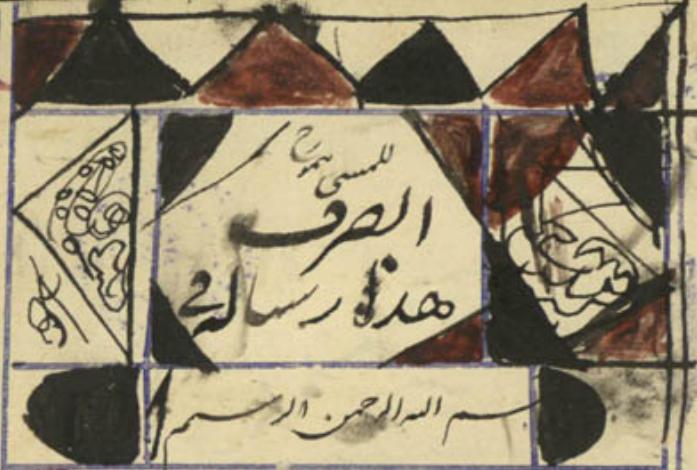 للمسمى
الصرف
هذه رسالة في
بسم الله الرحمن الرحيم